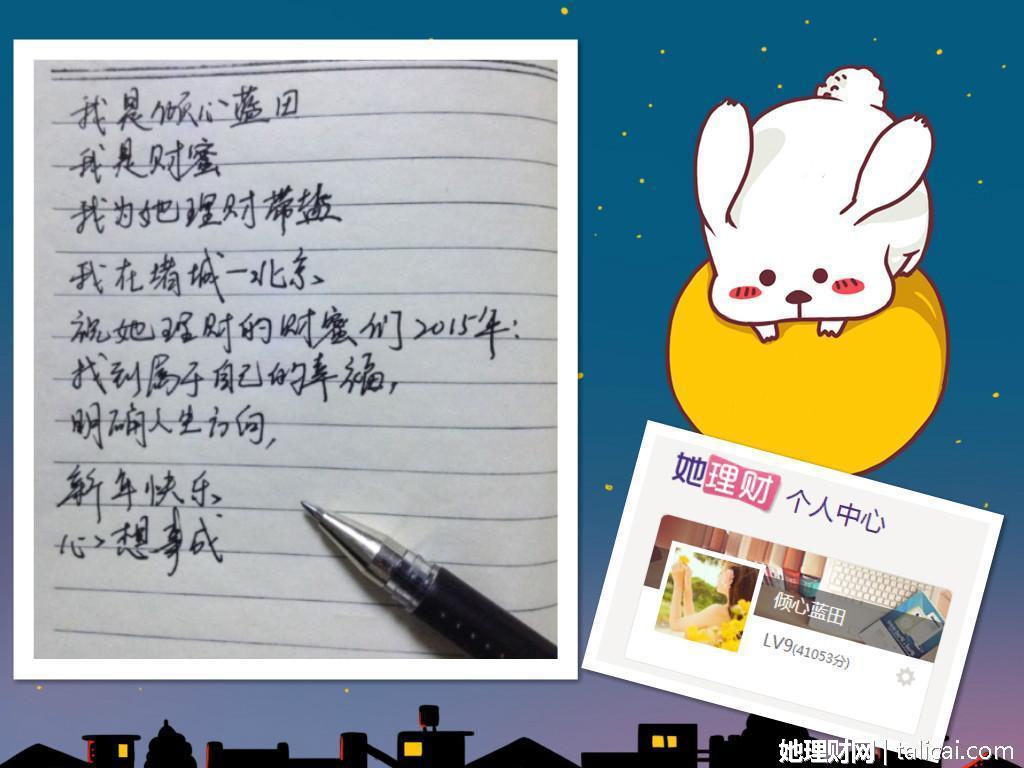 我是倾心蓝田
我是财蜜
我为她理财带盐
我在堵城—北京
祝她理财的财蜜们2015年:
找到属于自己的幸福,
明确人生方向,
新年快乐
心想事成
她理财 个人中心
倾心蓝田
LV9(41053分)
她理财网 | talicai.com